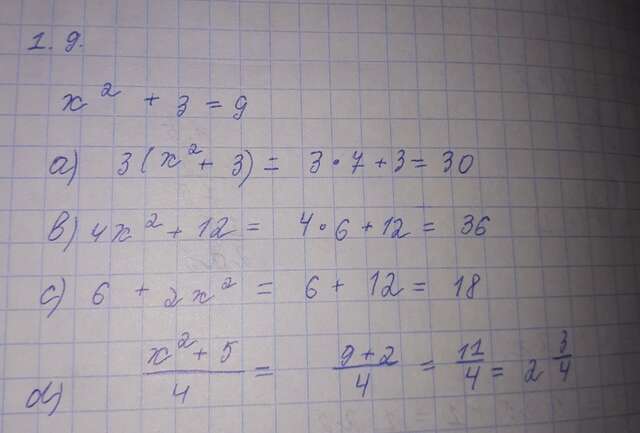 1. 9.
x² + 3 = 9
a) 3(x² + 3) = 3 • 7 + 3 = 30
b) 4x² + 12 = 4 • 6 + 12 = 36
c) 6 + 2x² = 6 + 12 = 18
d) (x² + 5)/4 = (9 + 2)/4 = 11/4 = 2 3/4